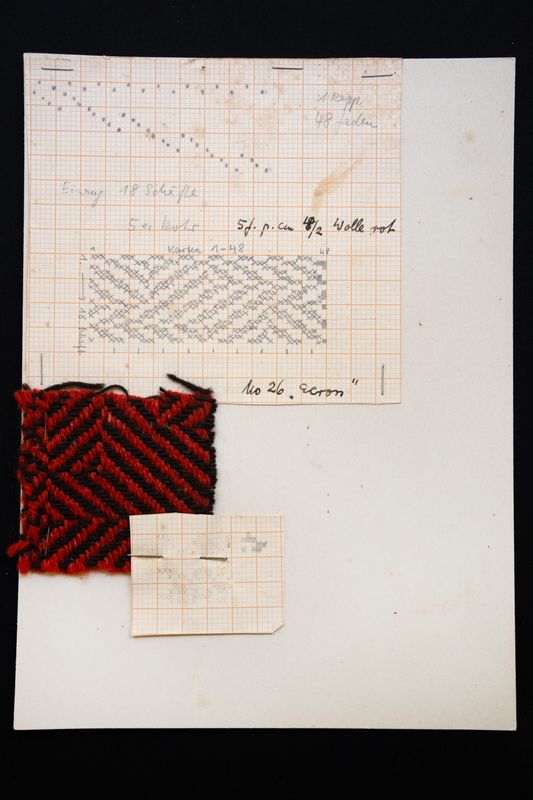 1 Rapp.
48 Fäden
Einzug 18 Schäfte
5 er Rohr
5 f. p. cm 4/2 Wolle rot
Karten 1–48
1
48
18
No 26 „ecron"